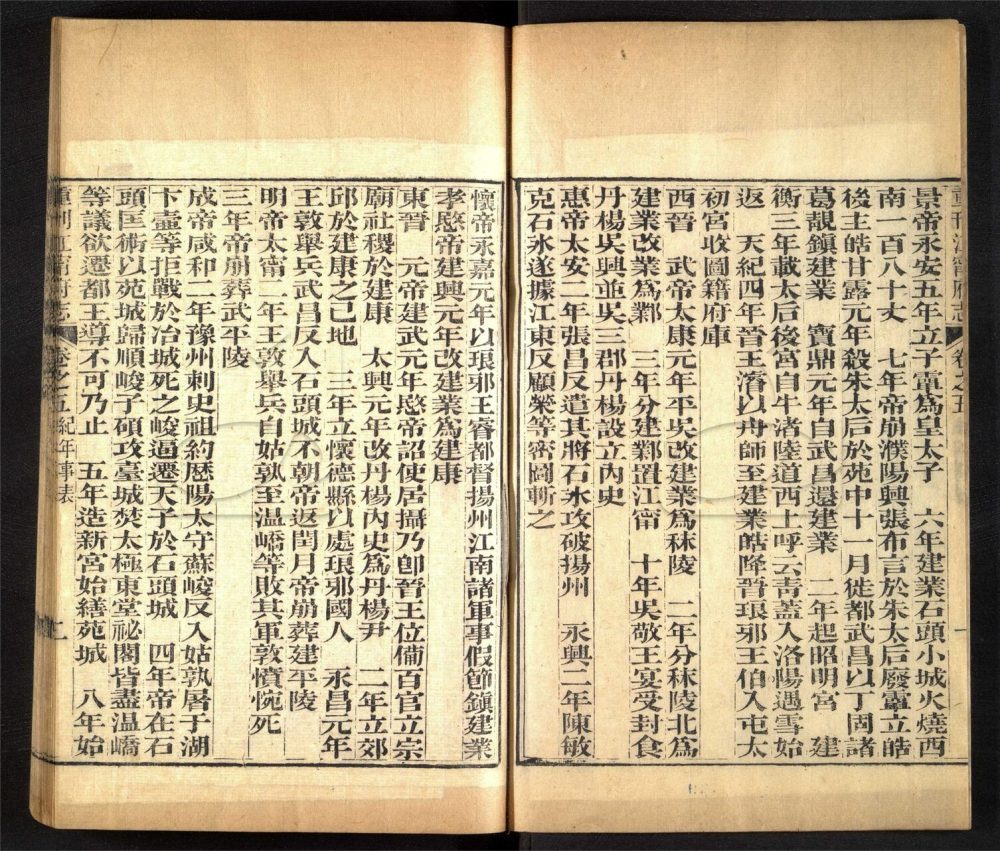 景帝永安五年立子𩅦為皇太子　六年建業石頭小城火燒西
南一百八十丈　七年帝崩濮陽興張布言於朱太后廢𩅦立皓
後主皓甘露元年殺朱太后於苑中十一月徙都武昌以丁固諸
葛靚鎮建業　寶鼎元年自武昌還建業　二年起昭明宮　建
衡三年載太后後宮自牛渚陸道西上呼云青蓋入洛陽遇雪始
返　天紀四年晉王濬以舟師至建業皓降晉琅邪王伯入屯太
初宮收圖籍府庫
西晉　武帝太康元年平吳改建業為秣陵　二年分秣陵北為
建業改業為鄴　三年分建鄴置江甯　十年吳敬王宴受封食
丹楊吳興並吳三郡丹楊設立內史
惠帝太安二年張昌反遣其將石氷攻破揚州　永興二年陳敏
克石氷遂據江東反顧榮等密圖斬之
懷帝永嘉元年以琅邪王睿都督揚州江南諸軍事假節鎮建業
孝愍帝建興元年改建業為建康
東晉　元帝建武元年愍帝詔使居攝乃卽晉王位備百官立宗
廟社稷於建康　太興元年改丹楊內史為丹楊尹　二年立郊
邱於建康之己地　三年立懷德縣以處琅邪國人　永昌元年
王敦舉兵武昌反入石頭城不朝帝返閏月帝崩葬建平陵
明帝太甯二年王敦舉兵自姑孰至温嶠等敗其軍敦憤惋死
三年帝崩葬武平陵
成帝咸和二年豫州刺史祖約歴陽太守蘇峻反入姑孰屠于湖
卞壼等拒戰於冶城死之峻逼遷天子於石頭城　四年帝在石
頭匡術以苑城歸順峻子碩攻臺城焚太極東堂祕閣皆盡温嶠
等議欲遷都王導不可乃止　五年造新宮始繕苑城　八年始
重刊江甯府志　卷之五　紀年事表　二